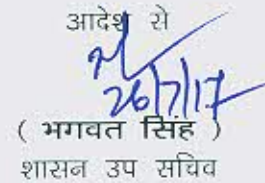 आदेश से
26/7/17
( भगवत सिंह )
शासन उप सचिव